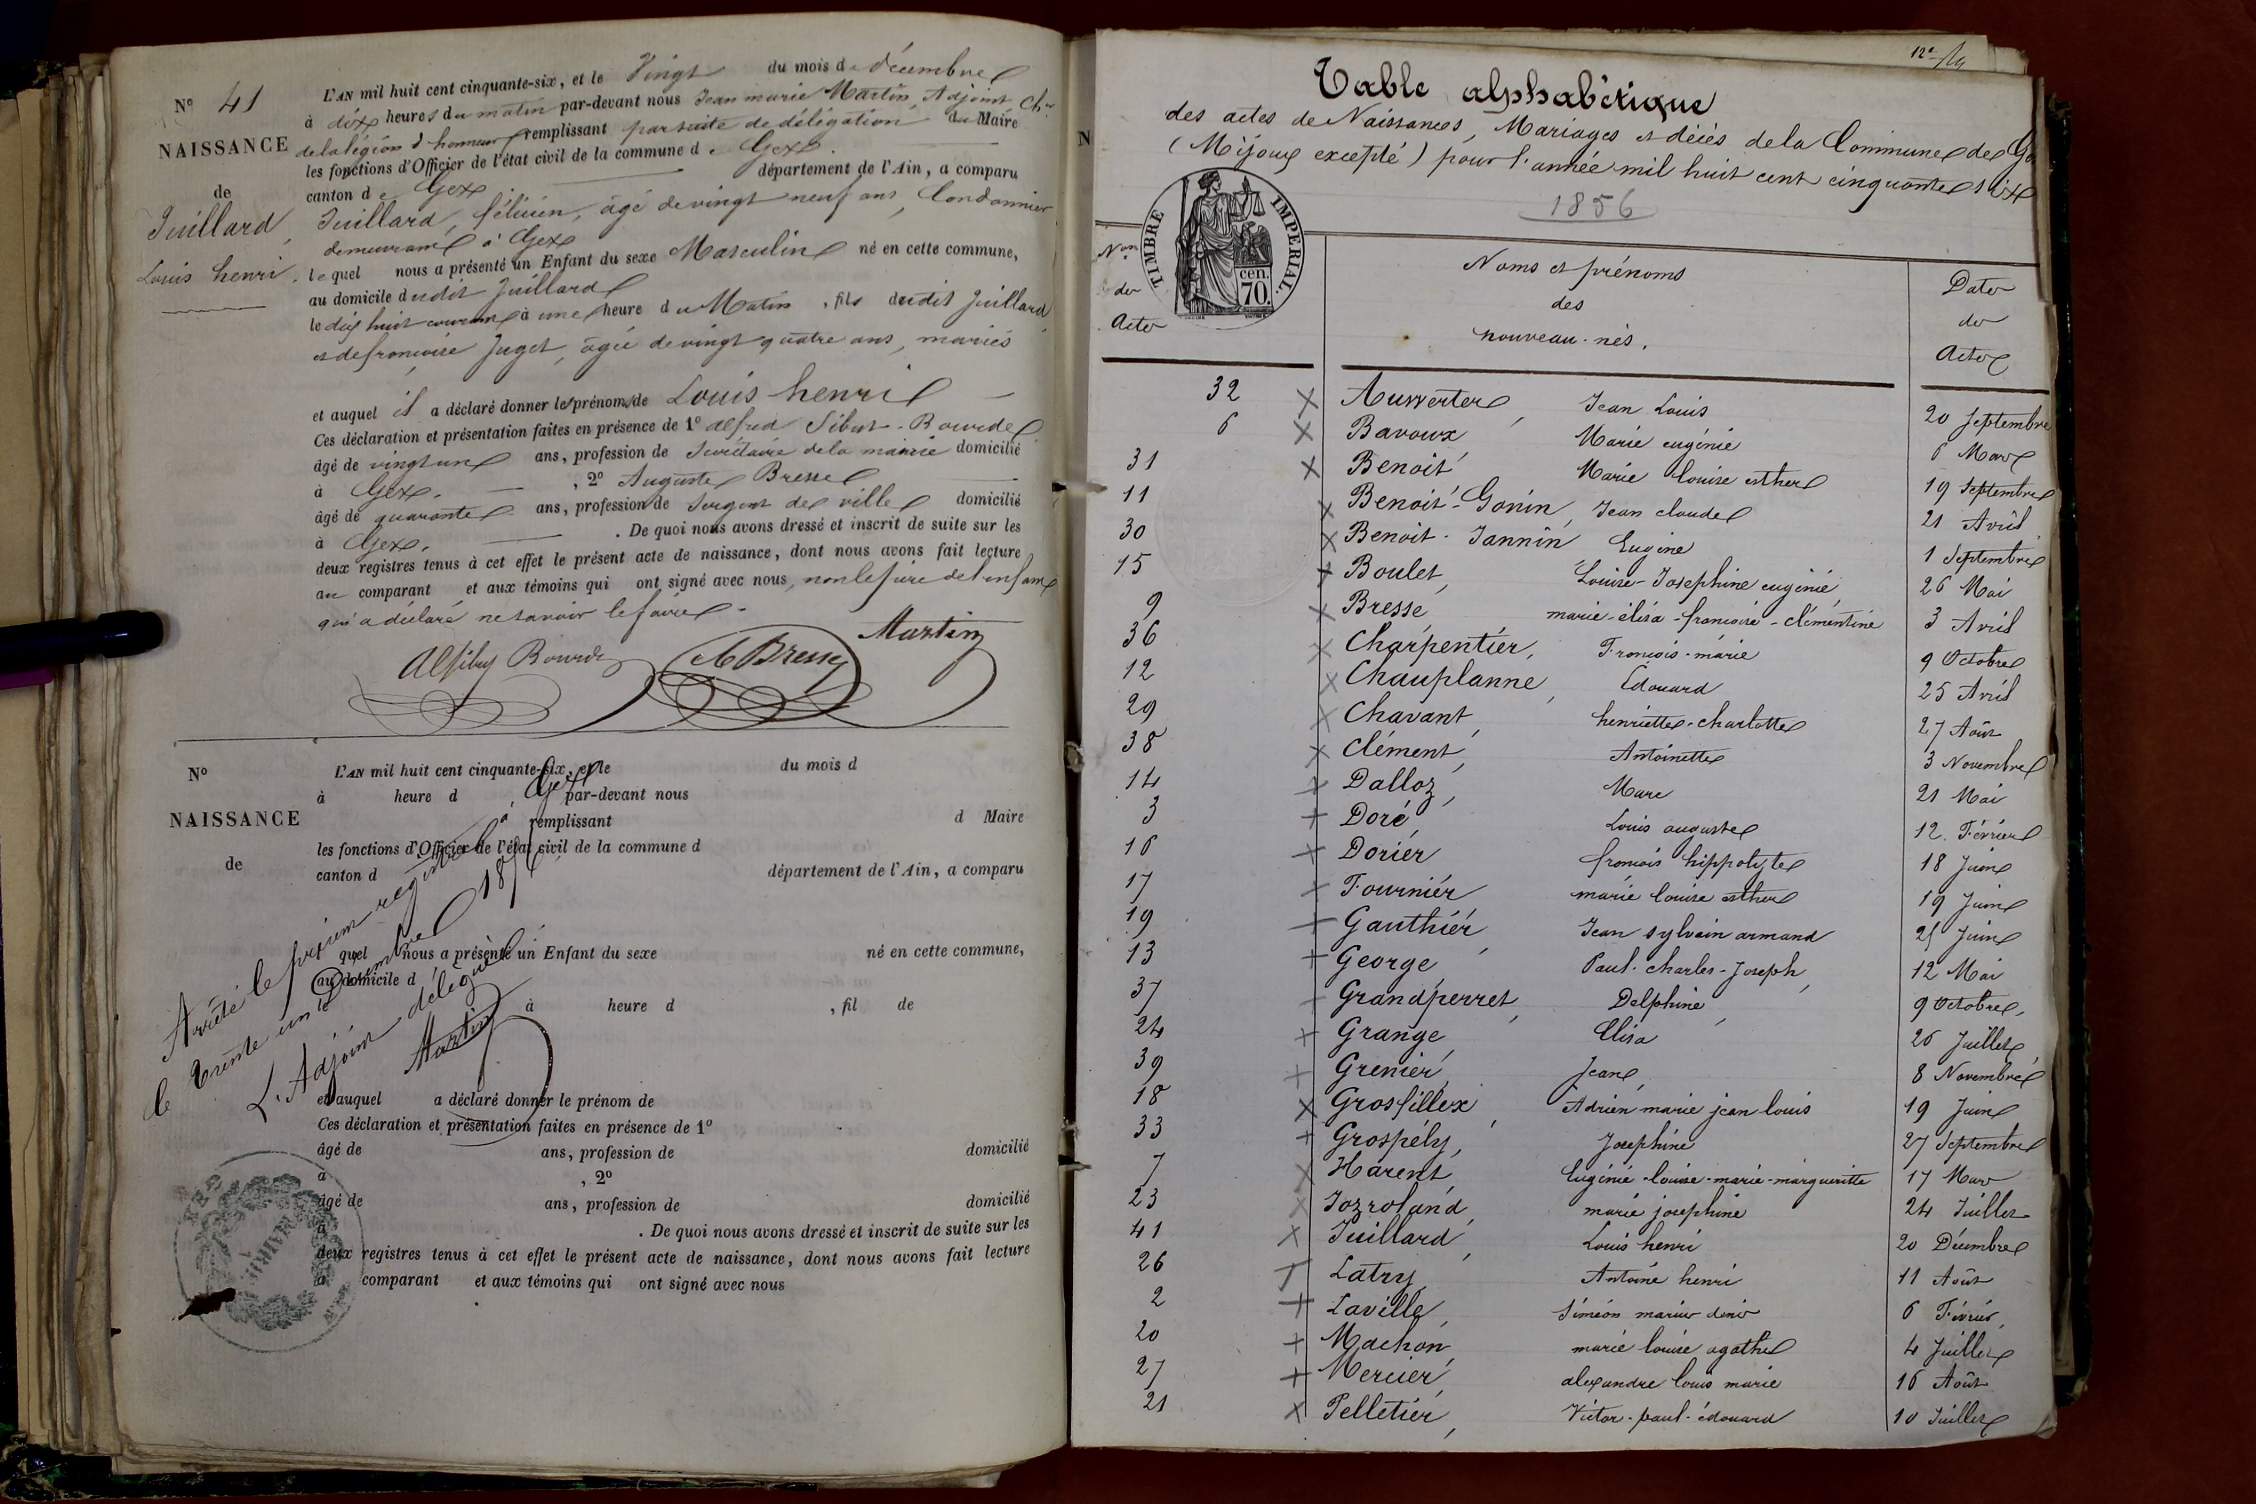 N° 41
NAISSANCE
de
Juillard,
Louis henri.
L'AN mil huit cent cinquante-six, et le Vingt du mois de décembre
à dix heures du matin par-devant nous Jean marie Martin, Adjoint, Chr
de la légion d'honneur remplissant par suite de délégation du Maire
les fonctions d'Officier de l'état civil de la commune de Gex.
canton de Gex département de l'Ain, a comparu
Juillard, félicien, âgé de vingt neuf ans, Cordonnier
demeurant à Gex
lequel nous a présenté un Enfant du sexe Masculin né en cette commune,
au domicile dudit Juillard
le dix huit courant à une heure du Matin, fils dudit Juillard
et de françoise Juget, âgée de vingt quatre ans, mariés
et auquel il a déclaré donner les prénoms de Louis henri
Ces déclaration et présentation faites en présence de 1° alfred Sibut-Bourde
âgé de vingt un ans, profession de Secrétaire de la mairie domicilié
à Gex. , 2° Auguste Bresse
âgé de quarante ans, profession de Sergent de ville domicilié
à Gex. . De quoi nous avons dressé et inscrit de suite sur les
deux registres tenus à cet effet le présent acte de naissance, dont nous avons fait lecture
au comparant et aux témoins qui ont signé avec nous, non le père de l'enfant
qui a déclaré ne savoir le faire.
Martin
Bourde
A Bresse
N°
NAISSANCE
de
L'AN mil huit cent cinquante-six, et le du mois d
à heure d , par-devant nous
remplissant d Maire
les fonctions d'Officier de l'état civil de la commune d
canton d département de l'Ain, a comparu
quel nous a présenté un Enfant du sexe né en cette commune,
au domicile d
le à heure d , fil de
et auquel a déclaré donner le prénom de
Ces déclaration et présentation faites en présence de 1°
âgé de ans, profession de domicilié
à , 2°
âgé de ans, profession de domicilié
à . De quoi nous avons dressé et inscrit de suite sur les
deux registres tenus à cet effet le présent acte de naissance, dont nous avons fait lecture
a comparant et aux témoins qui ont signé avec nous
Arrêté le présent registre à Gex
le trente un Décembre 1856
L'Adjoint délégué
Martin
Table alphabétique
des actes de Naissances, Mariages et décès de la Commune de Gex
(Mijoux excepté) pour l'année mil huit cent cinquante six
1856
TIMBRE IMPERIAL.
cen.
70.
Nos
de
Acte
Noms et prénoms
des
nouveau-nés.
Date
de
Acte
32 Auwerter, Jean Louis 20 Septembre
6 Bavoux Marie eugénie 6 Mars
31 Benoit Marie louise esther 19 Septembre
11 Benoit-Gonin, Jean claude 21 Avril
30 Benoit-Jannin Eugène 1 Septembre
15 Boulet, Louise-Josephine eugénie, 26 Mai
9 Bresse, marie-élisa-françoise-clémentine 3 Avril
36 Charpentier, François-marie 9 Octobre
12 Chauplanne, Edouard 25 Avril
29 Chavant, henriette-charlotte 27 Août
38 Clément, Antoinette 3 Novembre
14 Dalloz, Marc 21 Mai
3 Doré, Louis auguste 12 Février
16 Dorier françois hippolyte 18 Juin
17 Fournier, marie louise esther 19 Juin
19 Gauthier, Jean sylvain armand 25 Juin
13 George, Paul-charles-Joseph, 12 Mai
37 Grandperret, Delphine, 9 Octobre.
24 Grange, Elisa 26 Juillet
39 Grenier, Jean, 8 Novembre
18 Grosfillex, Adrien marie jean louis 19 Juin
33 Grospély, Josephine 27 Septembre
7 Harent, Eugénie-louise-marie-marguerite 17 Mars
23 Jozroland, marie josephine 24 Juillet
41 Juillard, Louis henri 20 Décembre
26 Latry, Antoine henri 11 Août
2 Laville, Siméon marius denis 6 Février,
20 Machon, marie louise agathe 4 Juillet
27 Mercier, alexandre louis marie 16 Août
21 Pelletier, Victor-paul-édouard 10 Juillet